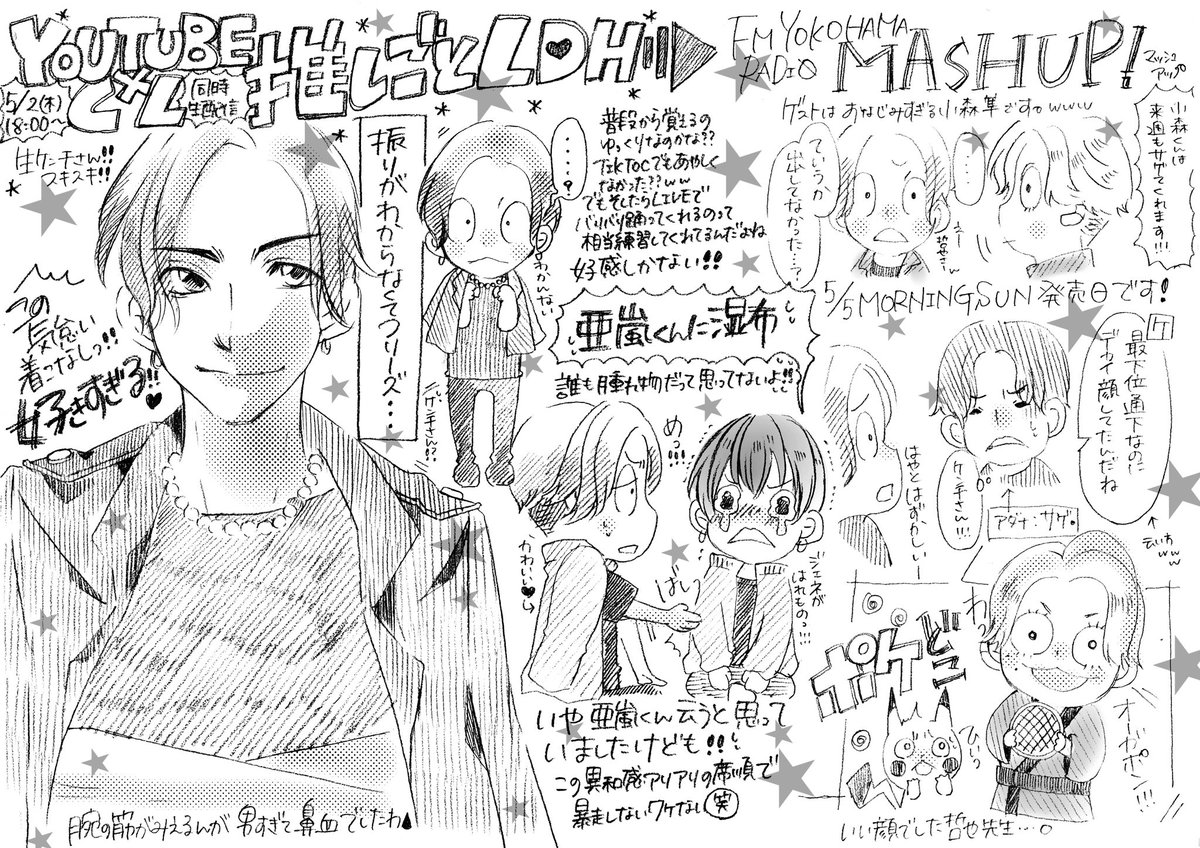 YOUTUBE
5/2(木)
18:00〜
CXL
同時
生配信
推しごとLDH
生ケンチさん!!
スキスキ!!
この気怠い
着こなしっ!!
好きすぎる!!
腕の筋がみえるんが 男すぎて鼻血でたわ
振りがわからなくてフリーズ...
.....?
わかんない
ケンチさん!?
普段から覚えるの
ゆっくりなのかな??
TikTocでもあやしく
なかった??ww
でもそしたらLIVEで
バリバリ踊ってくれるのって
相当練習してくれてるんだよね
好感しかない!!
亜嵐くんに湿布
誰も腫れ物だって思ってないよ!!
めっ...!!!
かわいい
ばしっ
ジェネが
はれものっ...!!!
いや亜嵐くん云うと思って
いましたけども!!
この異和感アリアリの席順で
暴走しないワケない(笑)
FM YOKOHAMA
RADIO
MASHUP!
マッシュ
アップ
ゲストはおなじみすぎる小森隼ですwww
小森くんは
来週もサゲてくれます!!!
ていうか
出してなかった...?
....
えー
5/5 MORNING SUN 発売日です!
ケ
最下位通下なのに
デカイ顔してたいだね
云い方
ww
はやとはずかしいー
ケンチさん...!!!
アダナ:サゲ。
ポケピコ
わっ
ひいっ
オーガポン!!!
いい顔でした哲也先生...。